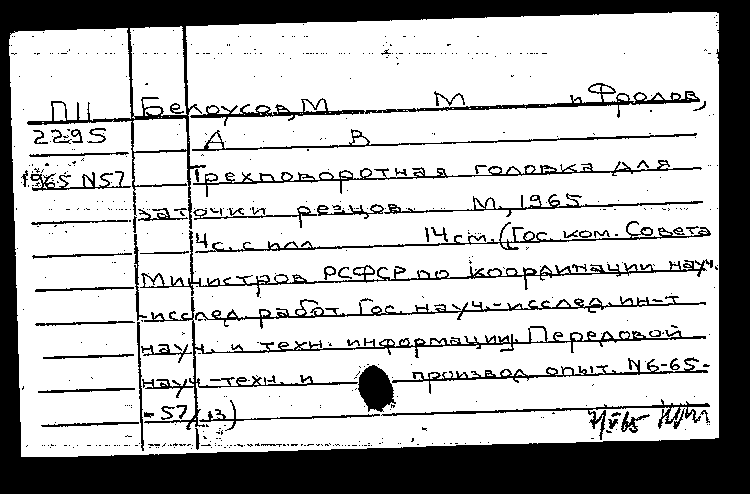 ПII Белоусов, М М и Фролов,
2295 А В
1965 N57 Трехповоротная головка для
заточки резцов. М., 1965
4с. с илл 14 см. (Гос. ком. Совета
Министров РСФСР по координации науч.
-исслед. работ. Гос. науч.-исслед. ин-т
науч. и техн. информации). Передовой
науч.-техн. и производ. опыт. N6-65-
-57/13)